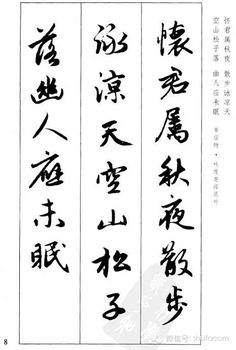 怀君属秋夜 散步咏凉天
空山松子落 幽人应未眠
韦应物·秋夜寄邱员外
懷君屬秋夜散步
詠涼天空山松子
落幽人應未眠
8
微信号: